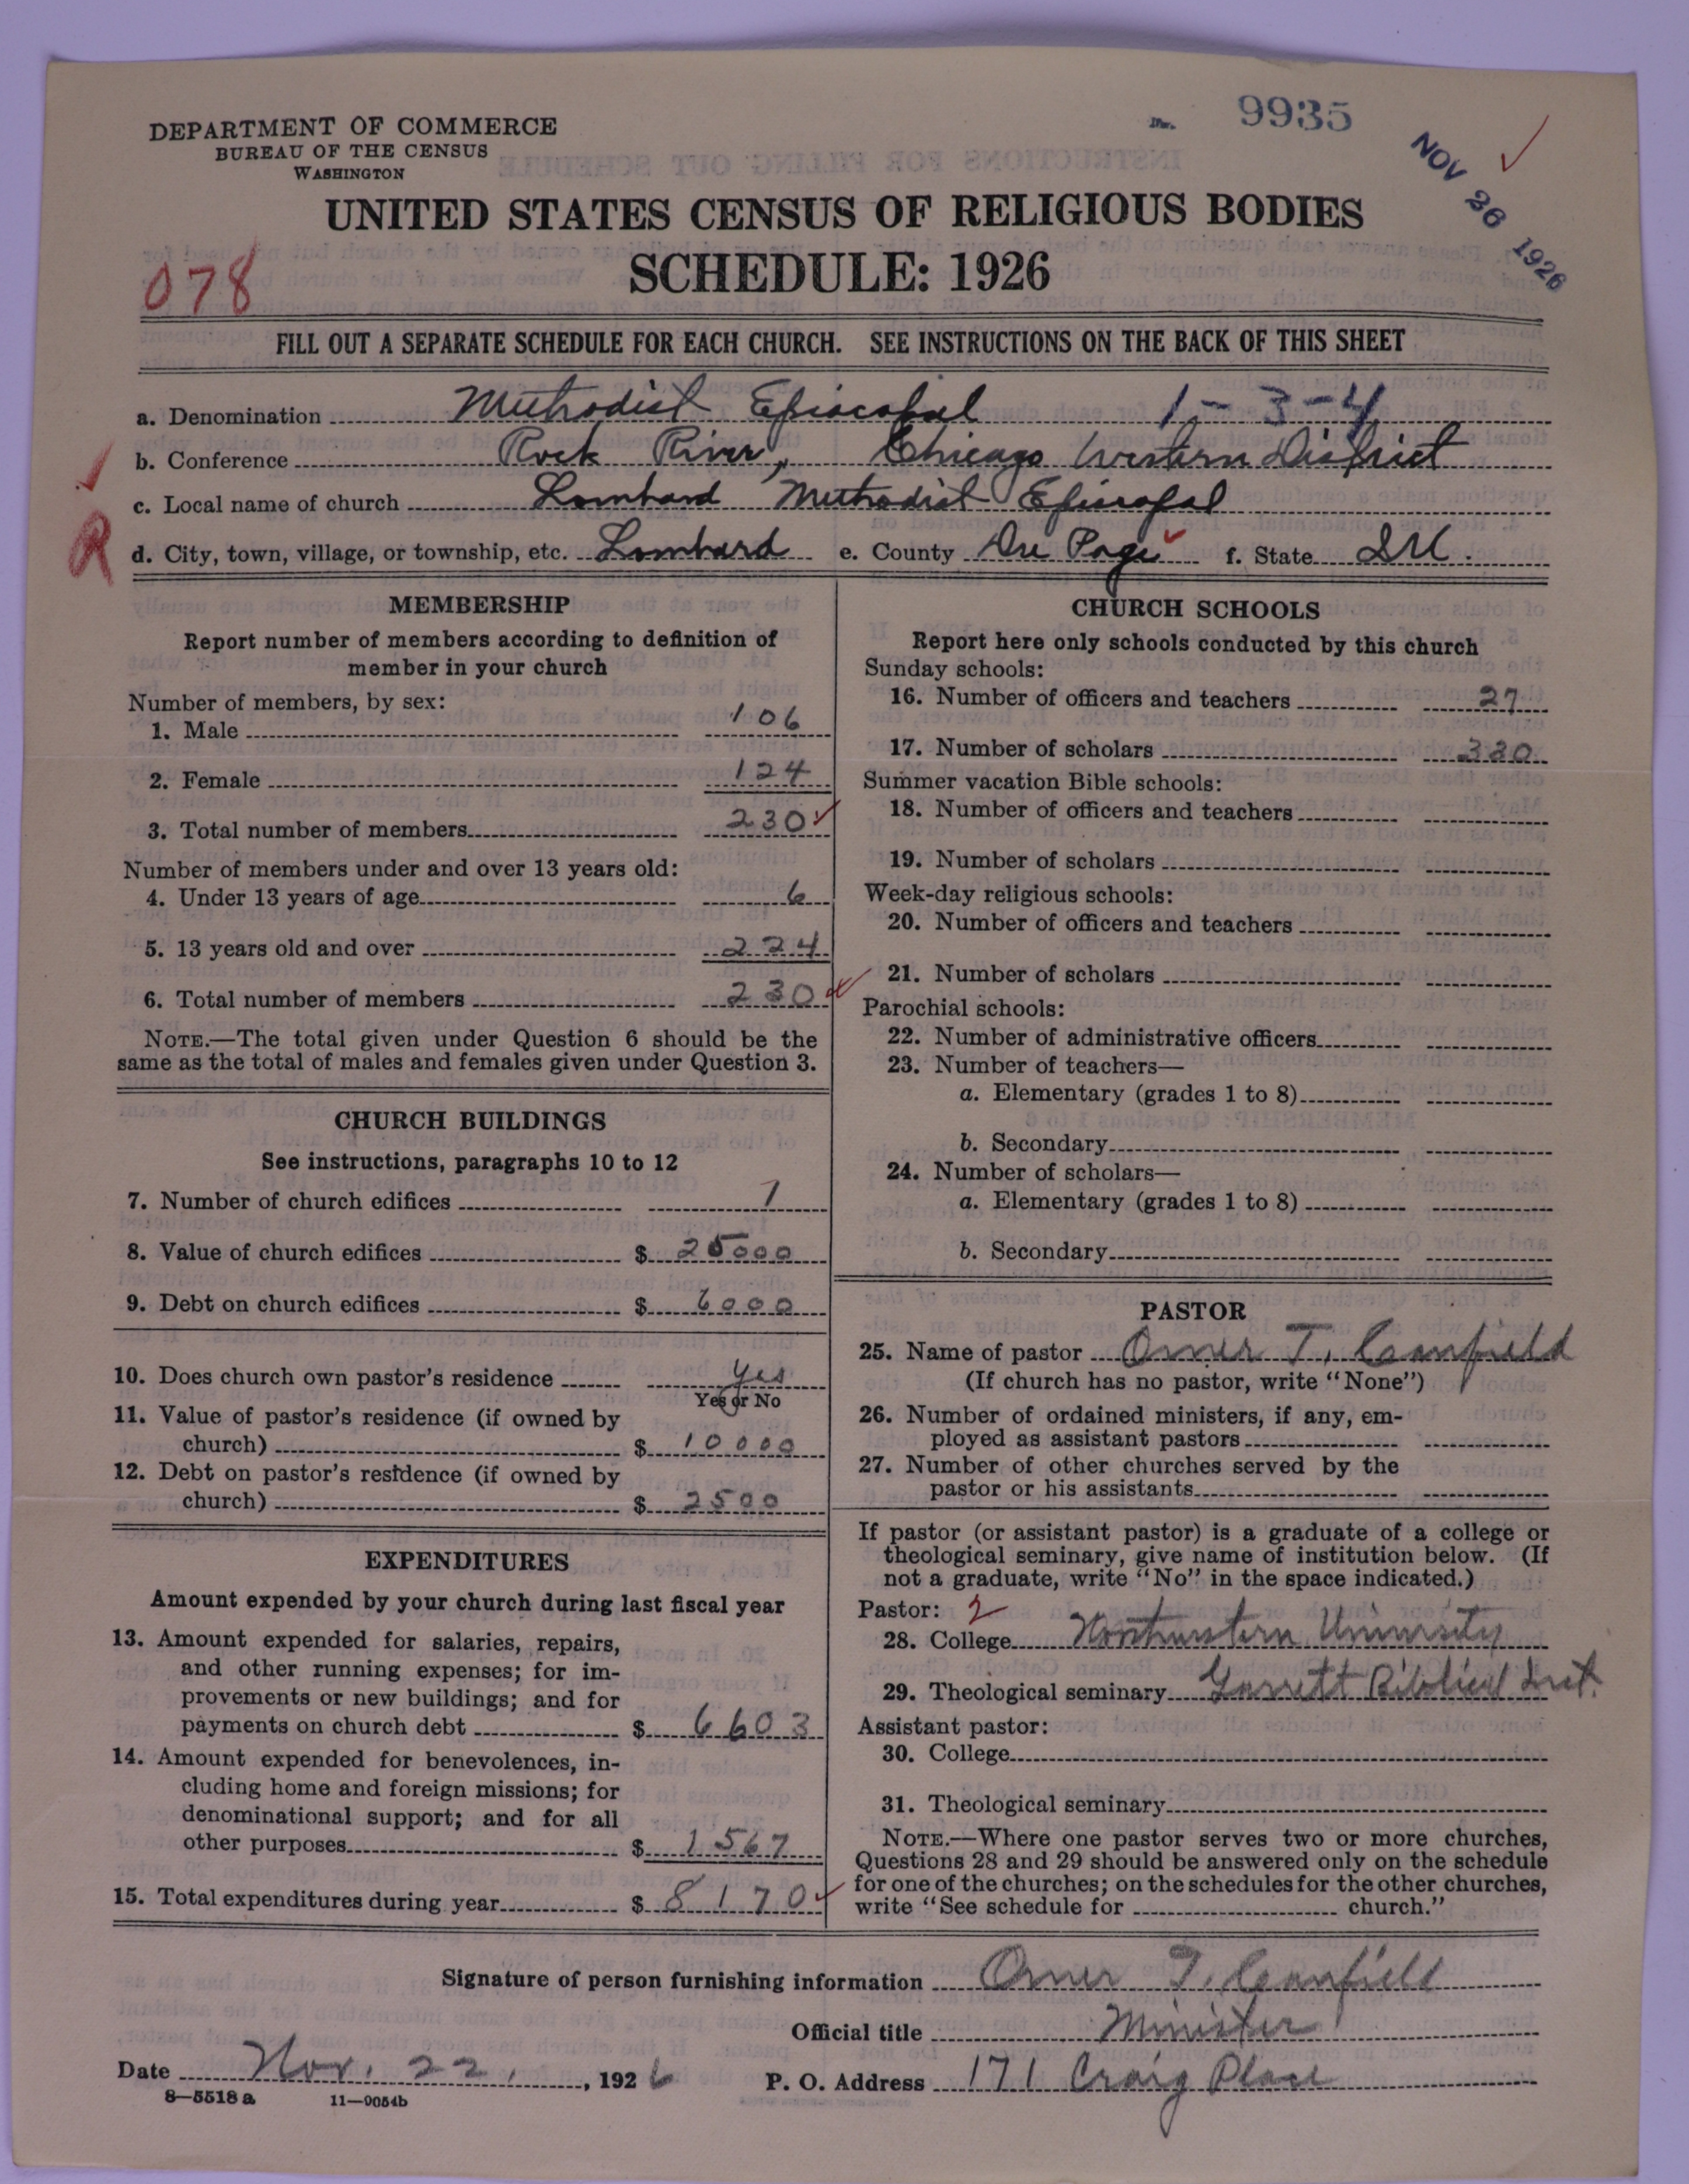 DEPARTMENT OF COMMERCE
BUREAU OF THE CENSUS
WASHINGTON
9935
NOV 26 1926
UNITED STATES CENSUS OF RELIGIOUS BODIES
SCHEDULE: 1926
078
FILL OUT A SEPARATE SCHEDULE FOR EACH CHURCH. SEE INSTRUCTIONS ON THE BACK OF THIS SHEET
a. Denomination Methodist Episcopal 1-3-4
b. Conference Rock River, Chicago Western District
c. Local name of church Lombard Methodist Episcopal
R
d. City, town, village, or township, etc. Lombard e. County Du Page f. State Ill.
MEMBERSHIP
Report number of members according to definition of
member in your church
Number of members, by sex:
1. Male 106
2. Female 124
3. Total number of members 230
Number of members under and over 13 years old:
4. Under 13 years of age 6
5. 13 years old and over 224
6. Total number of members 230
NOTE.—The total given under Question 6 should be the
same as the total of males and females given under Question 3.
CHURCH BUILDINGS
See instructions, paragraphs 10 to 12
7. Number of church edifices 1
8. Value of church edifices $ 25000
9. Debt on church edifices $ 6000
10. Does church own pastor's residence Yes
Yes or No
11. Value of pastor's residence (if owned by
church) $ 10000
12. Debt on pastor's residence (if owned by
church) $ 2500
EXPENDITURES
Amount expended by your church during last fiscal year
13. Amount expended for salaries, repairs,
and other running expenses; for im-
provements or new buildings; and for
payments on church debt $ 6603
14. Amount expended for benevolences, in-
cluding home and foreign missions; for
denominational support; and for all
other purposes $ 1567
15. Total expenditures during year $ 8170
CHURCH SCHOOLS
Report here only schools conducted by this church
Sunday schools:
16. Number of officers and teachers 27
17. Number of scholars 330
Summer vacation Bible schools:
18. Number of officers and teachers
19. Number of scholars
Week-day religious schools:
20. Number of officers and teachers
21. Number of scholars
Parochial schools:
22. Number of administrative officers
23. Number of teachers—
a. Elementary (grades 1 to 8)
b. Secondary
24. Number of scholars—
a. Elementary (grades 1 to 8)
b. Secondary
PASTOR
25. Name of pastor Omer T. Canfield
(If church has no pastor, write "None")
26. Number of ordained ministers, if any, em-
ployed as assistant pastors
27. Number of other churches served by the
pastor or his assistants
If pastor (or assistant pastor) is a graduate of a college or
theological seminary, give name of institution below. (If
not a graduate, write "No" in the space indicated.)
Pastor: 2
28. College Northwestern University
29. Theological seminary Garrett Biblical Inst.
Assistant pastor:
30. College
31. Theological seminary
NOTE.—Where one pastor serves two or more churches,
Questions 28 and 29 should be answered only on the schedule
for one of the churches; on the schedules for the other churches,
write "See schedule for church."
Signature of person furnishing information Omer T. Canfield
Official title Minister
Date Nov. 22, 1926 P. O. Address 171 Craig Place
8—5518 a 11—9054b